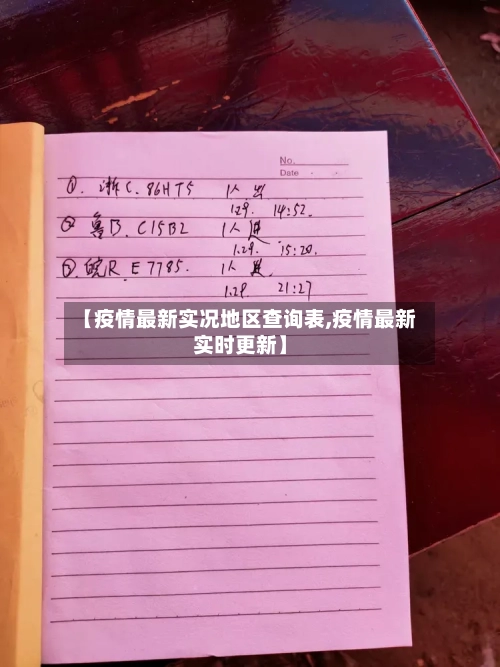 No.
Date
①. 浙C.86HT5 1人 出
1.29. 14:52.
② 鲁B.C15B2 1人 进
1.29. 15:20.
③.皖R.E7785. 1人 进.
1.29. 21:27
【疫情最新实况地区查询表,疫情最新
实时更新】